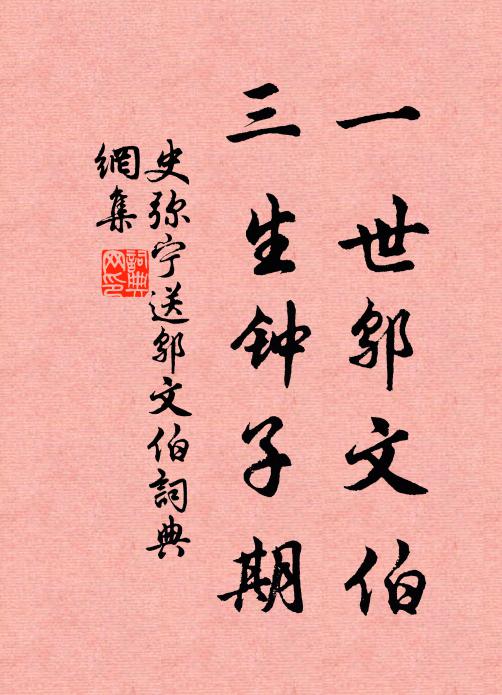 一世邬文伯
三生钟子期
史弥宁送邬文伯詞典
網集
詞典
网印